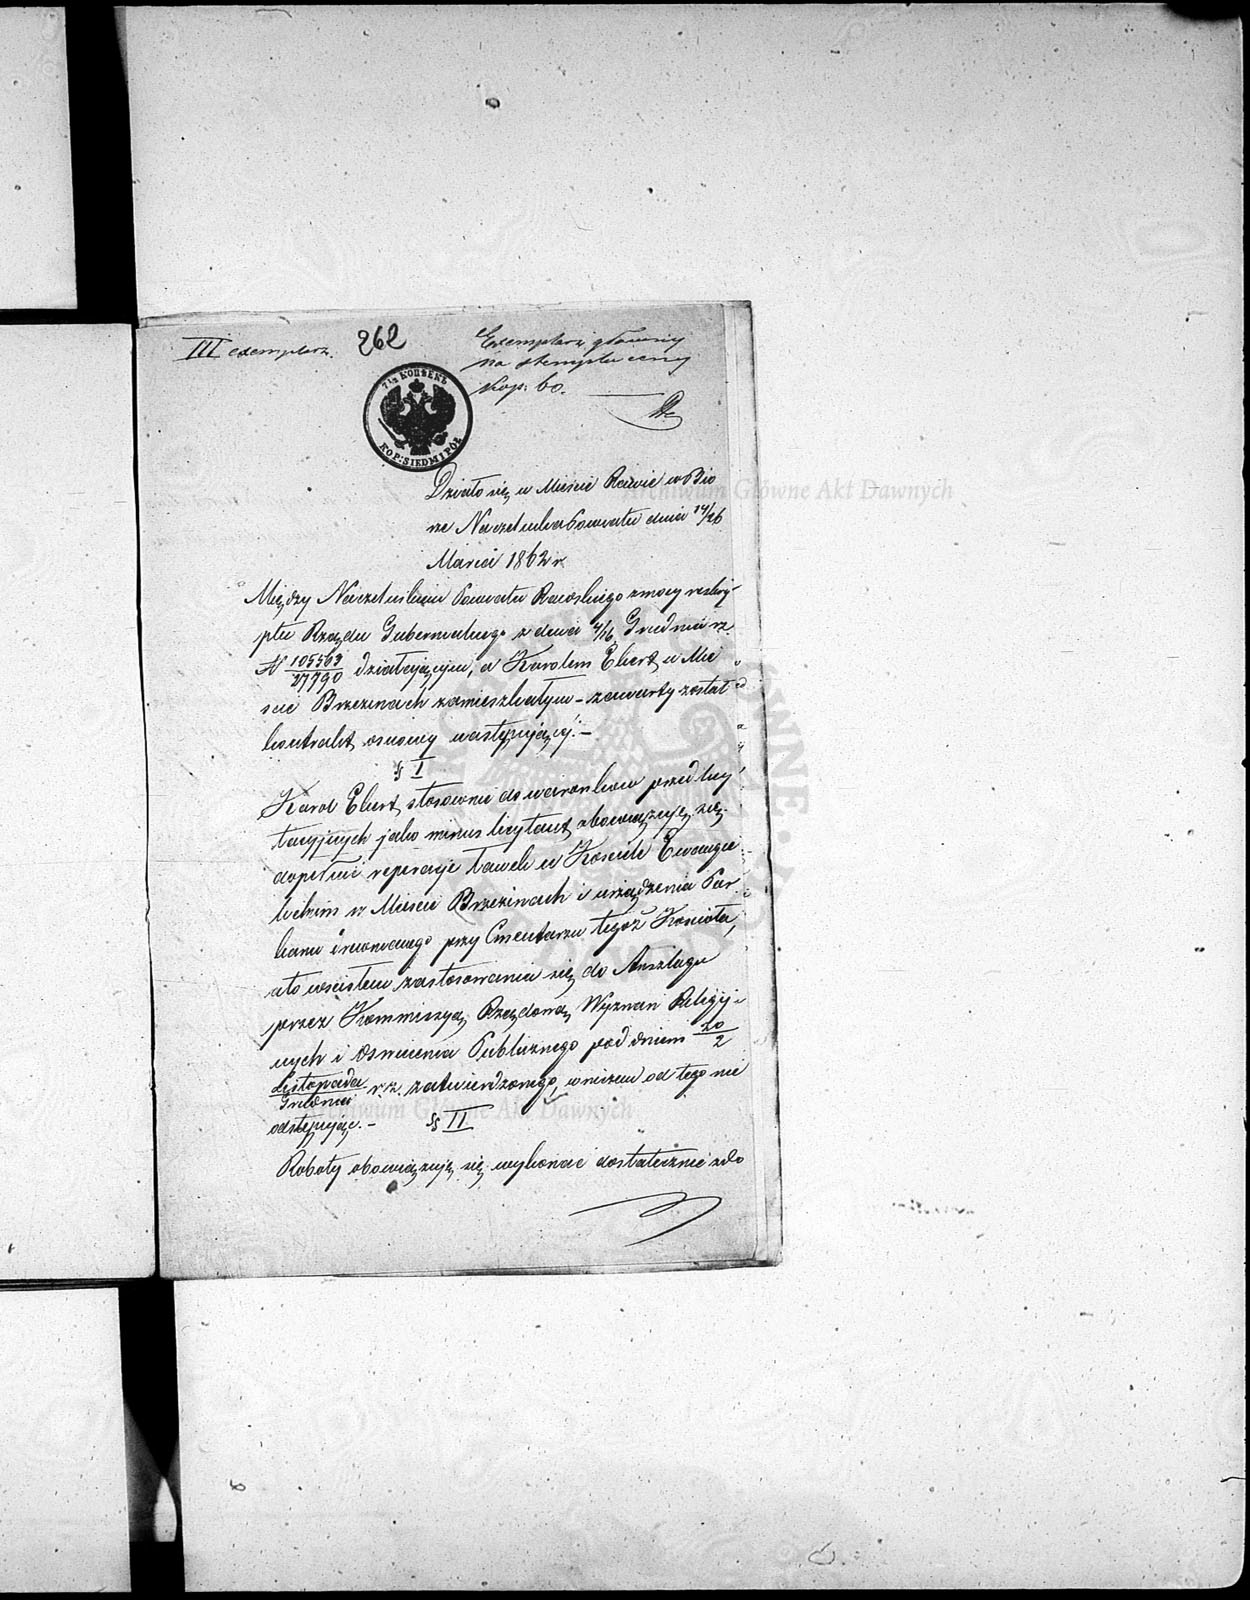 III exemplarz.
262
Exemplarz główny
na stemplu ceny
Kop: 60.
7½ КОПѢЕКЪ
KOP: SIEDM I PÓŁ
Działo się w Mieście Rawie w Biu
rze Naczelnika Powiatu dnia 14/26
Marca 1862 r
Między Naczelnikiem Powiatu Rawskiego z mocy reskry
ptu Rządu Gubernialnego z dnia 4/16 Grudnia r.z.
N 105563/27790 działającym, a Karolem Ebert w Mie
ście Brzezinach zamieszkałym – zawarty został
kontrakt osnowy następującej: –
§ I
Karol Ebert stosownie do warunków przedlicy
tacyjnych jako minus licytant obowiązuje się
dopełnić reperacje ławek w Kościele Ewangie
lickim w Mieście Brzezinach i urządzenia Par
kanu drewnianego przy Cmentarzu tegoż Kościoła,
a to w ścisłem zastosowaniu się do Anszlagu
przez Kommissyą Rządową Wyznań Religij
nych i Oświecenia Publicznego pod dniem 20/2
Listopada/Grudnia r. z. zatwierdzonego, w niczem od tego nie
odstępując. –
§ II
Roboty obowiązuję się wykonać dostatecznie z do
Archiwum Główne Akt Dawnych
Archiwum Główne Akt Dawnych